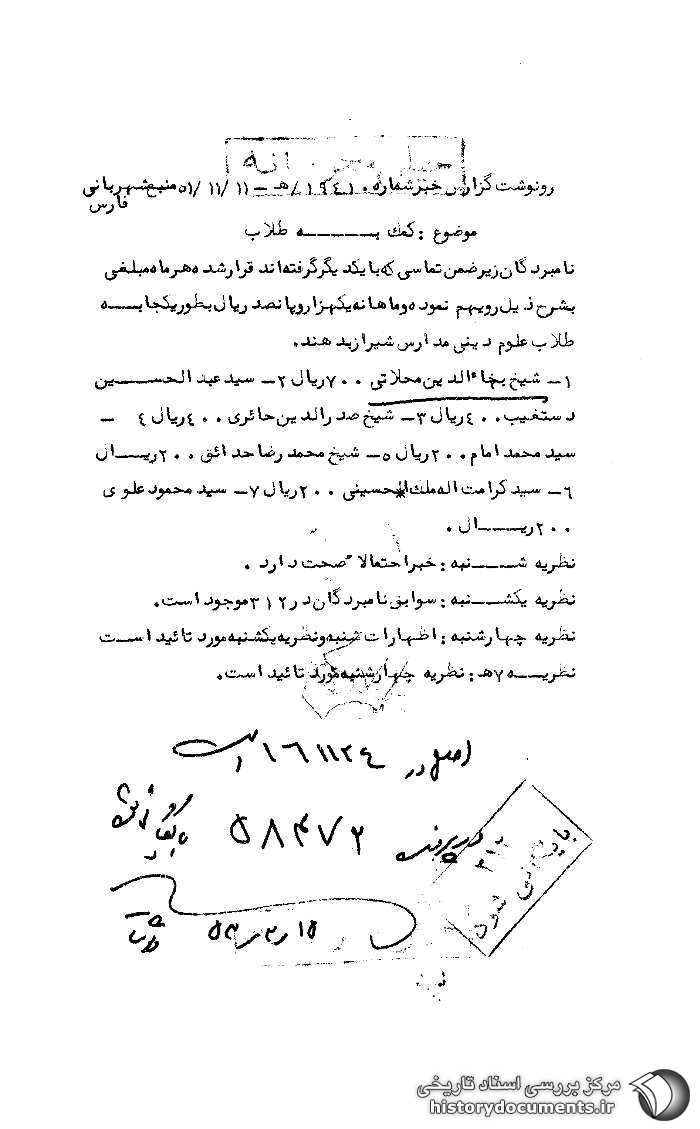 خیلی محرمانه
رونوشت گزارش خبر شماره ۱۹٤۱۰/هـ – ۱۱/۱۱/۵۱ منبع شهربانی
فارس
موضوع : کمک بـه طلاب
نامبردگان زیر ضمن تماسی که با یکدیگر گرفته‌اند قرار شده هر ماه مبلغی
بشرح ذیل رویهم نموده و ماهانه یکهزار و پانصد ریال بطور یکجا بـه
طلاب علوم دینی مدارس شیراز بدهند.
۱– شیخ بهاءالدین محلاتی ۷۰۰ ریال ۲– سید عبدالحسین
دستغیب ٤۰۰ ریال ۳– شیخ صدرالدین حائری ٤۰۰ ریال ٤ –
سید محمد امام ۲۰۰ ریال ۵– شیخ محمد رضا حدائق ۲۰۰ ریال
۶– سید کرامت اله ملک الحسینی ۲۰۰ ریال ۷– سید محمود علوی
۲۰۰ ریال .
نظریه شنبه : خبر احتمالاً صحت دارد .
نظریه یکشنبه : سوابق نامبردگان در ۳۱۲ موجود است.
نظریه چهارشنبه : اظهارات شنبه و نظریه یکشنبه مورد تائید است
نظریه ۷هـ : نظریه چهارشنبه مورد تائید است.
اصل در ۱۶۱۱۲٤ است
در پرونده ۵۸۴۷۲
بایگانی شود
۳۱۲
۱۵ر۳ر۵۳
مرکز بررسی اسناد تاریخی
historydocuments.ir